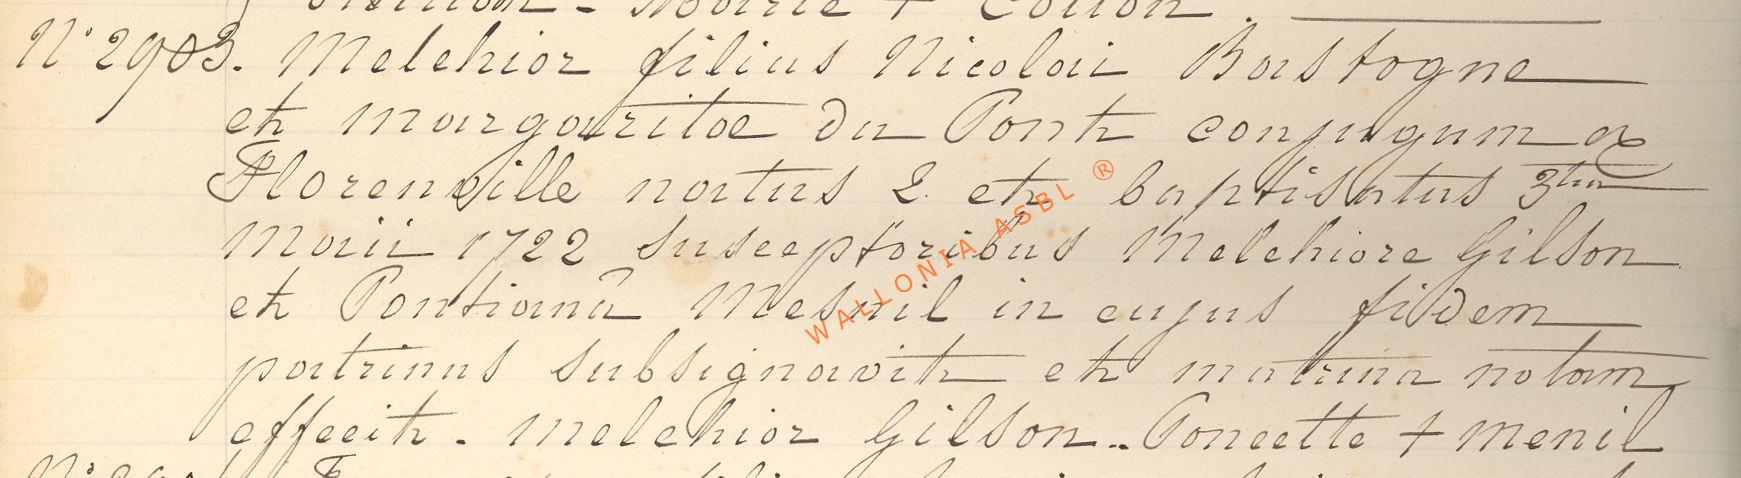 N° 2903. Melchior filius Nicolai Bastogne
et margaritae du Pont conjugum ex
Florenville natus 2. et baptisatus 3tia
Maii 1722 susceptoribus Melchiore Gilson
et Pontianâ Mesnil in cujus fidem
patrinus subsignavit et matrina notam
effecit. Melchior Gilson.. Poncette + menil
WALLONIA ASBL ®